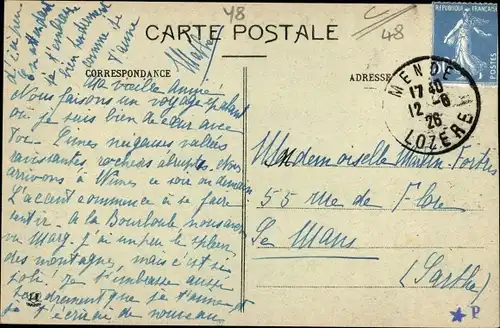 48
48
CARTE POSTALE
CORRESPONDANCE
ADRESSE
RÉPUBLIQUE FRANÇAISE
POSTES
MENDE
17 40
12 - 8
26
LOZÈRE
je t'embrasse
bien tendrement
comme je
t'aime
Ma vieille
Nous faisons un voyage
où je suis bien de cœur avec
toi. Cimes vallées
ravissantes rochers abruptes. Nous
arrivons à Nimes ce soir ou demain
L'accent commence à se faire
sentir. A la Bourboule nous avons
vu Marg. j'ai un peu le spleen
des montagnes, mais c'est si
joli. Je t'embrasse aussi
tendrement que je t'aime et
je t'écrirai de nouveau
Mademoiselle Martin-Fortris
55 rue de Flore
Le Mans
(Sarthe)
P